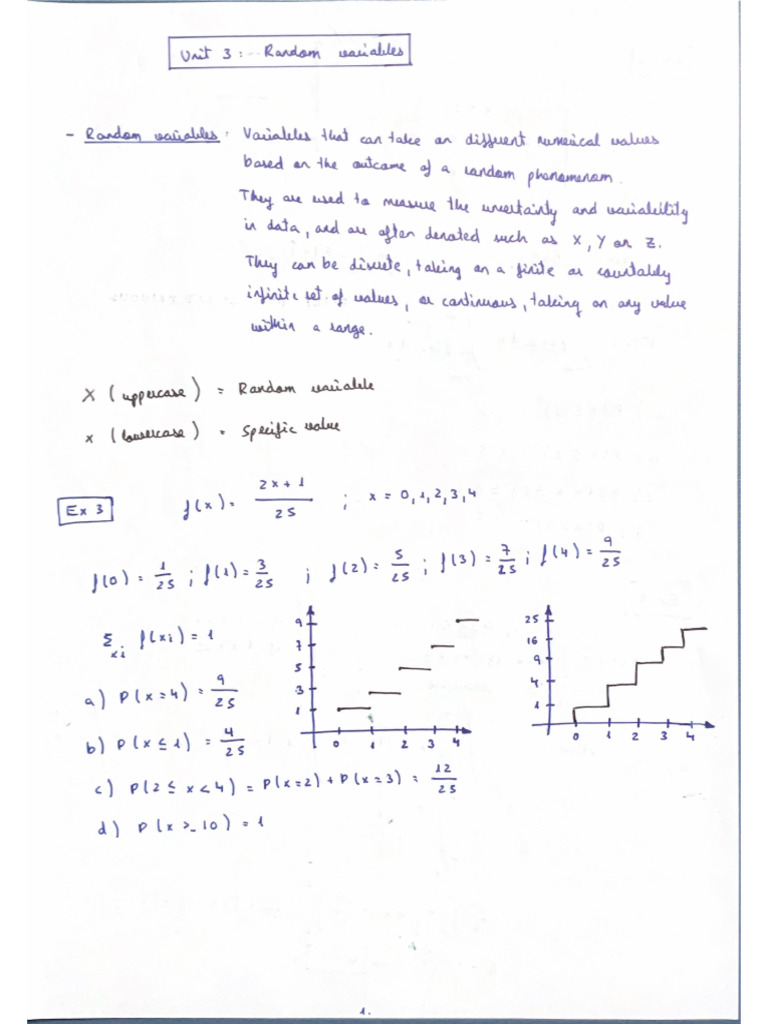 Unit 3: Random variables
- Random variables: Variables that can take on different numerical values
based on the outcome of a random phenomenom.
They are used to measure the uncertainty and variability
in data, and are often denoted such as X, Y or Z.
They can be discrete, taking on a finite or countably
infinite set of values, or continuous, taking on any value
within a range.
X (uppercase) = Random variable
x (lowercase) = Specific value
Ex 3 f(x) = (2x+1)/25 ; x = 0,1,2,3,4
f(0) = 1/25 ; f(1) = 3/25 ; f(2) = 5/25 ; f(3) = 7/25 ; f(4) = 9/25
Σxi f(xi) = 1
a) P(x=4) = 9/25
b) P(x ≤ 1) = 4/25
c) P(2 ≤ x < 4) = P(x=2) + P(x=3) = 12/25
d) P(x >_ 10) = 1
9
7
5
3
1
0 1 2 3 4
25
16
9
4
1
0 1 2 3 4
1.